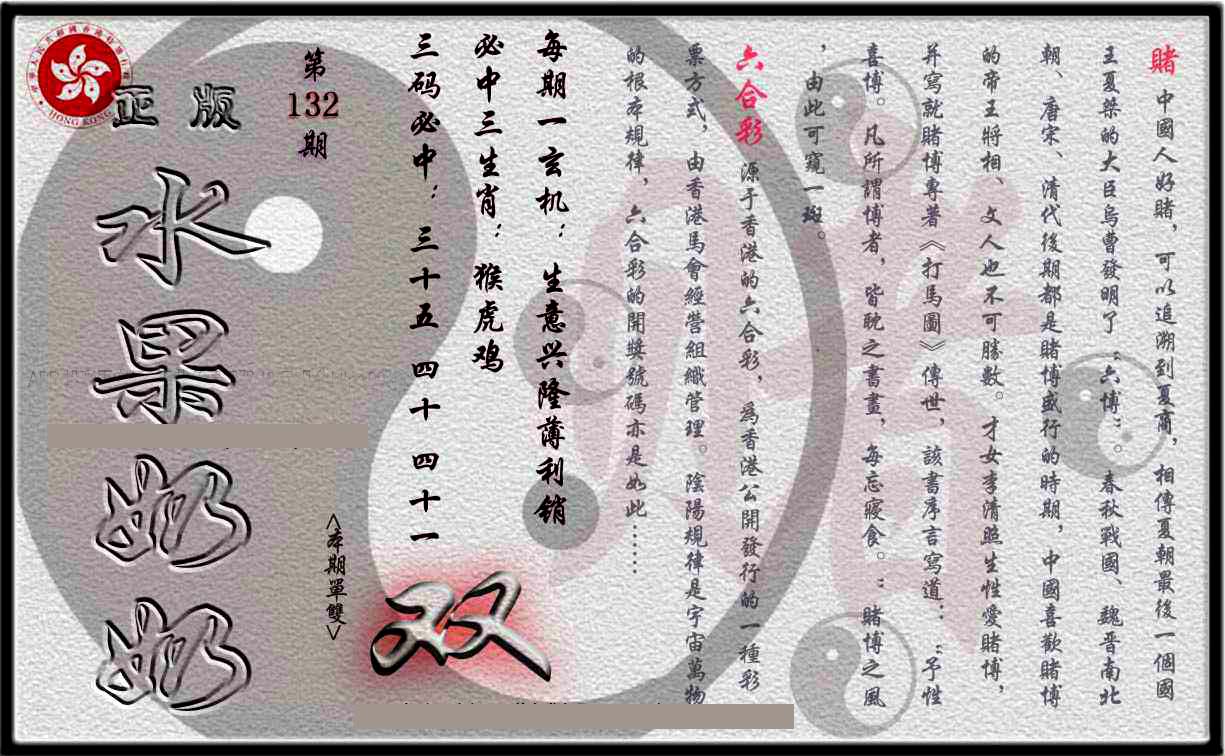 賭 中國人好賭，可以追溯到夏商，相傳夏朝最後一個國
王夏桀的大臣烏曹發明了“六博”。春秋戰國、魏晉南北
朝、唐宋、清代後期都是賭博盛行的時期，中國喜歡賭博
的帝王將相、文人也不可勝數。才女李清照生性愛賭博，
并寫就賭博專著《打馬圖》傳世，該書序言寫道：“予性
喜博。凡所謂博者，皆耽之書晝，每忘寢食。”賭博之風
，由此可窺一斑。
六合彩 源于香港的六合彩，為香港公開發行的一種彩
票方式，由香港馬會經營組織管理。陰陽規律是宇宙萬物
的根本規律，六合彩的開獎號碼亦是如此……
每期一玄机：生意兴隆薄利销
必中三生肖：猴虎鸡
三码必中：三十五 四十 四十一
双
第
132
期
<本期單雙>
正版
水果奶奶
HONG KONG